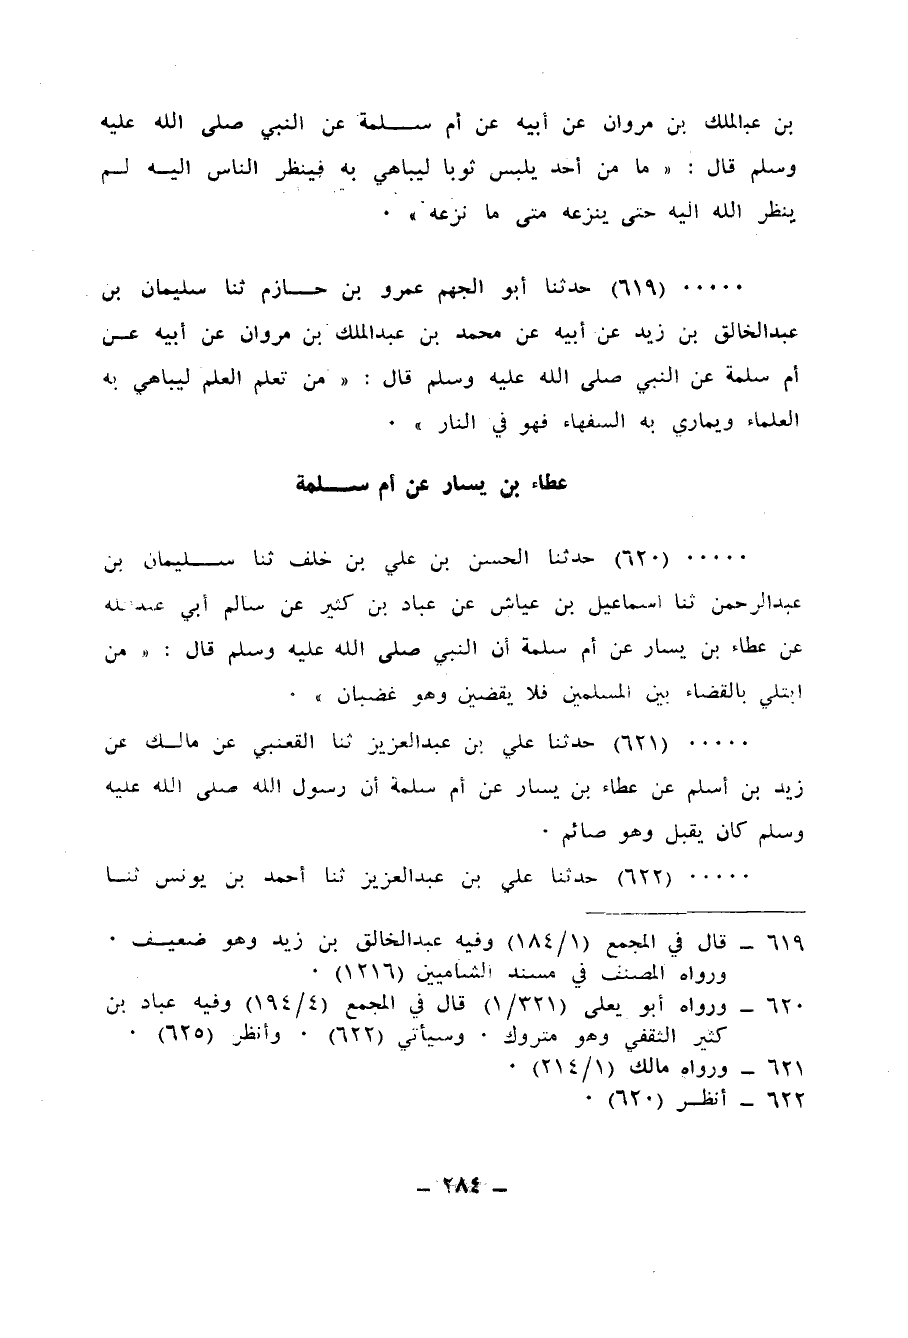 بن عبالملك بن مروان عن أبيه عن أم ســلمة عن النبي صلى الله عليه
وسلم قال : « ما من أحد يلبس ثوبا ليباهي به فينظر الناس اليــه لــم
ينظر الله اليه حتى ينزعه متى ما نزعه » ٠
٠٠٠٠٠ (٦١٩) حدثنا أبو الجهم عمرو بن حــازم ثنا سليمان بن
عبدالخالق بن زيد عن أبيه عن محمد بن عبدالملك بن مروان عن أبيه عــن
أم سلمة عن النبي صلى الله عليه وسلم قال : « من تعلم العلم ليباهي به
العلماء ويماري به السفهاء فهو في النار » ٠
عطاء بن يسار عن أم ســلمة
٠٠٠٠٠ (٦٢٠) حدثنا الحسن بن علي بن خلف ثنا ســليمان بن
عبدالرحمن ثنا اسماعيل بن عياش عن عباد بن كثير عن سالم أبي عبدالله
عن عطاء بن يسار عن أم سلمة أن النبي صلى الله عليه وسلم قال : « من
ابتلي بالقضاء بين المسلمين فلا يقضين وهو غضبان » ٠
٠٠٠٠٠ (٦٢١) حدثنا علي بن عبدالعزيز ثنا القعنبي عن مالــك عن
زيد بن أسلم عن عطاء بن يسار عن أم سلمة أن رسول الله صلى الله عليه
وسلم كان يقبل وهو صائم ٠
٠٠٠٠٠ (٦٢٢) حدثنا علي بن عبدالعزيز ثنا أحمد بن يونس ثنــا
٦١٩ ــ قال في المجمع (١٨٤/١) وفيه عبدالخالق بن زيد وهو ضعيــف ٠
ورواه المصنف في مسند الشاميين (١٢١٦) ٠
٦٢٠ ــ ورواه أبو يعلى (١/٣٢١) قال في المجمع (١٩٤/٤) وفيه عباد بن
كثير الثقفي وهو متروك ٠ وسيأتي (٦٢٢) ٠ وأنظر (٦٢٥) ٠
٦٢١ ــ ورواه مالك (٢١٤/١) ٠
٦٢٢ ــ أنظــر (٦٢٠) ٠
ــ ٢٨٤ ــ